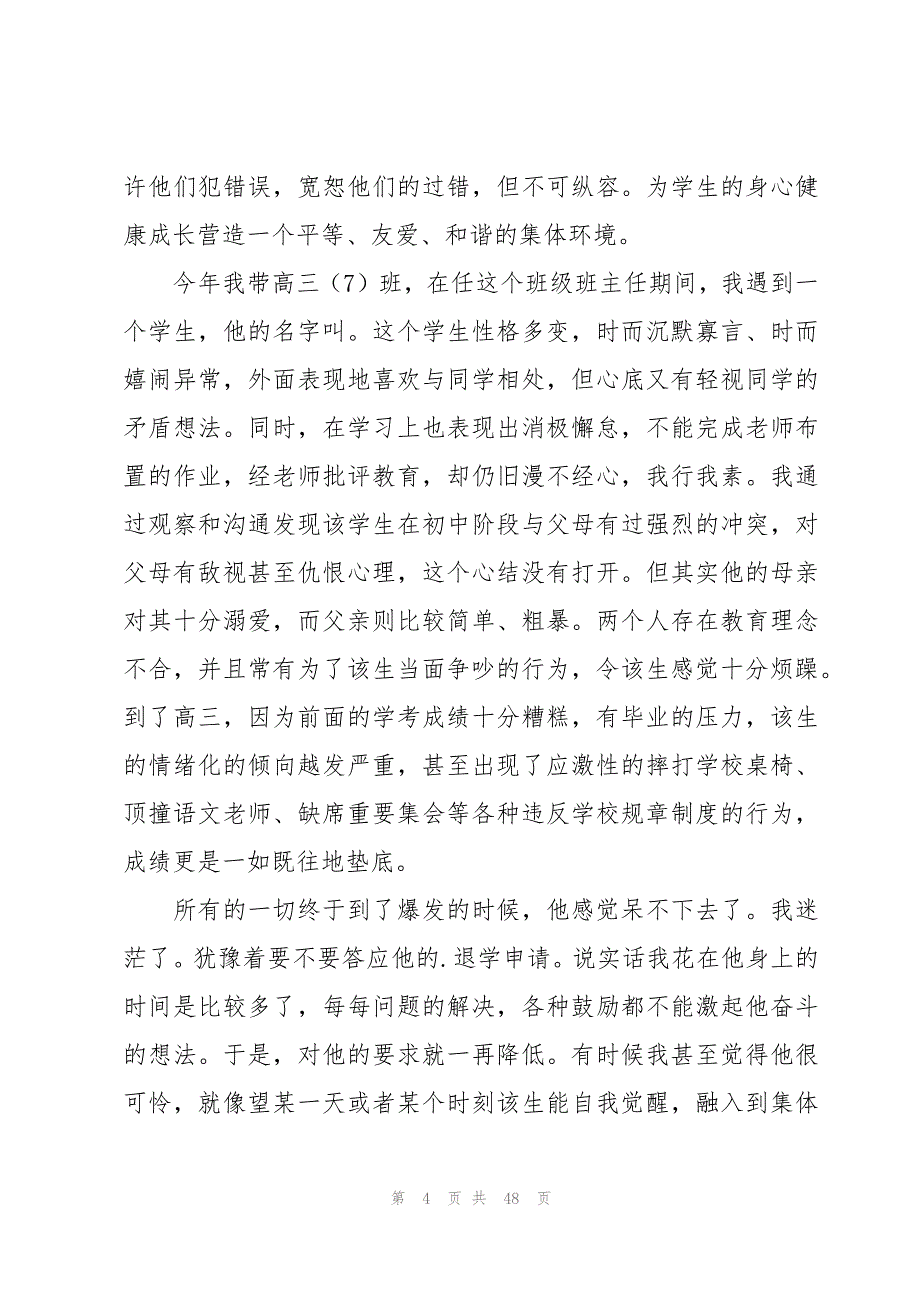 许他们犯错误，宽恕他们的过错，但不可纵容。为学生的身心健
康成长营造一个平等、友爱、和谐的集体环境。
今年我带高三（7）班，在任这个班级班主任期间，我遇到一
个学生，他的名字叫。这个学生性格多变，时而沉默寡言、时而
嬉闹异常，外面表现地喜欢与同学相处，但心底又有轻视同学的
矛盾想法。同时，在学习上也表现出消极懈怠，不能完成老师布
置的作业，经老师批评教育，却仍旧漫不经心，我行我素。我通
过观察和沟通发现该学生在初中阶段与父母有过强烈的冲突，对
父母有敌视甚至仇恨心理，这个心结没有打开。但其实他的母亲
对其十分溺爱，而父亲则比较简单、粗暴。两个人存在教育理念
不合，并且常有为了该生当面争吵的行为，令该生感觉十分烦躁。
到了高三，因为前面的学考成绩十分糟糕，有毕业的压力，该生
的情绪化的倾向越发严重，甚至出现了应激性的摔打学校桌椅、
顶撞语文老师、缺席重要集会等各种违反学校规章制度的行为，
成绩更是一如既往地垫底。
所有的一切终于到了爆发的时候，他感觉呆不下去了。我迷
茫了。犹豫着要不要答应他的.退学申请。说实话我花在他身上的
时间是比较多了，每每问题的解决，各种鼓励都不能激起他奋斗
的想法。于是，对他的要求就一再降低。有时候我甚至觉得他很
可怜，就像望某一天或者某个时刻该生能自我觉醒，融入到集体
第 4 页 共 48 页